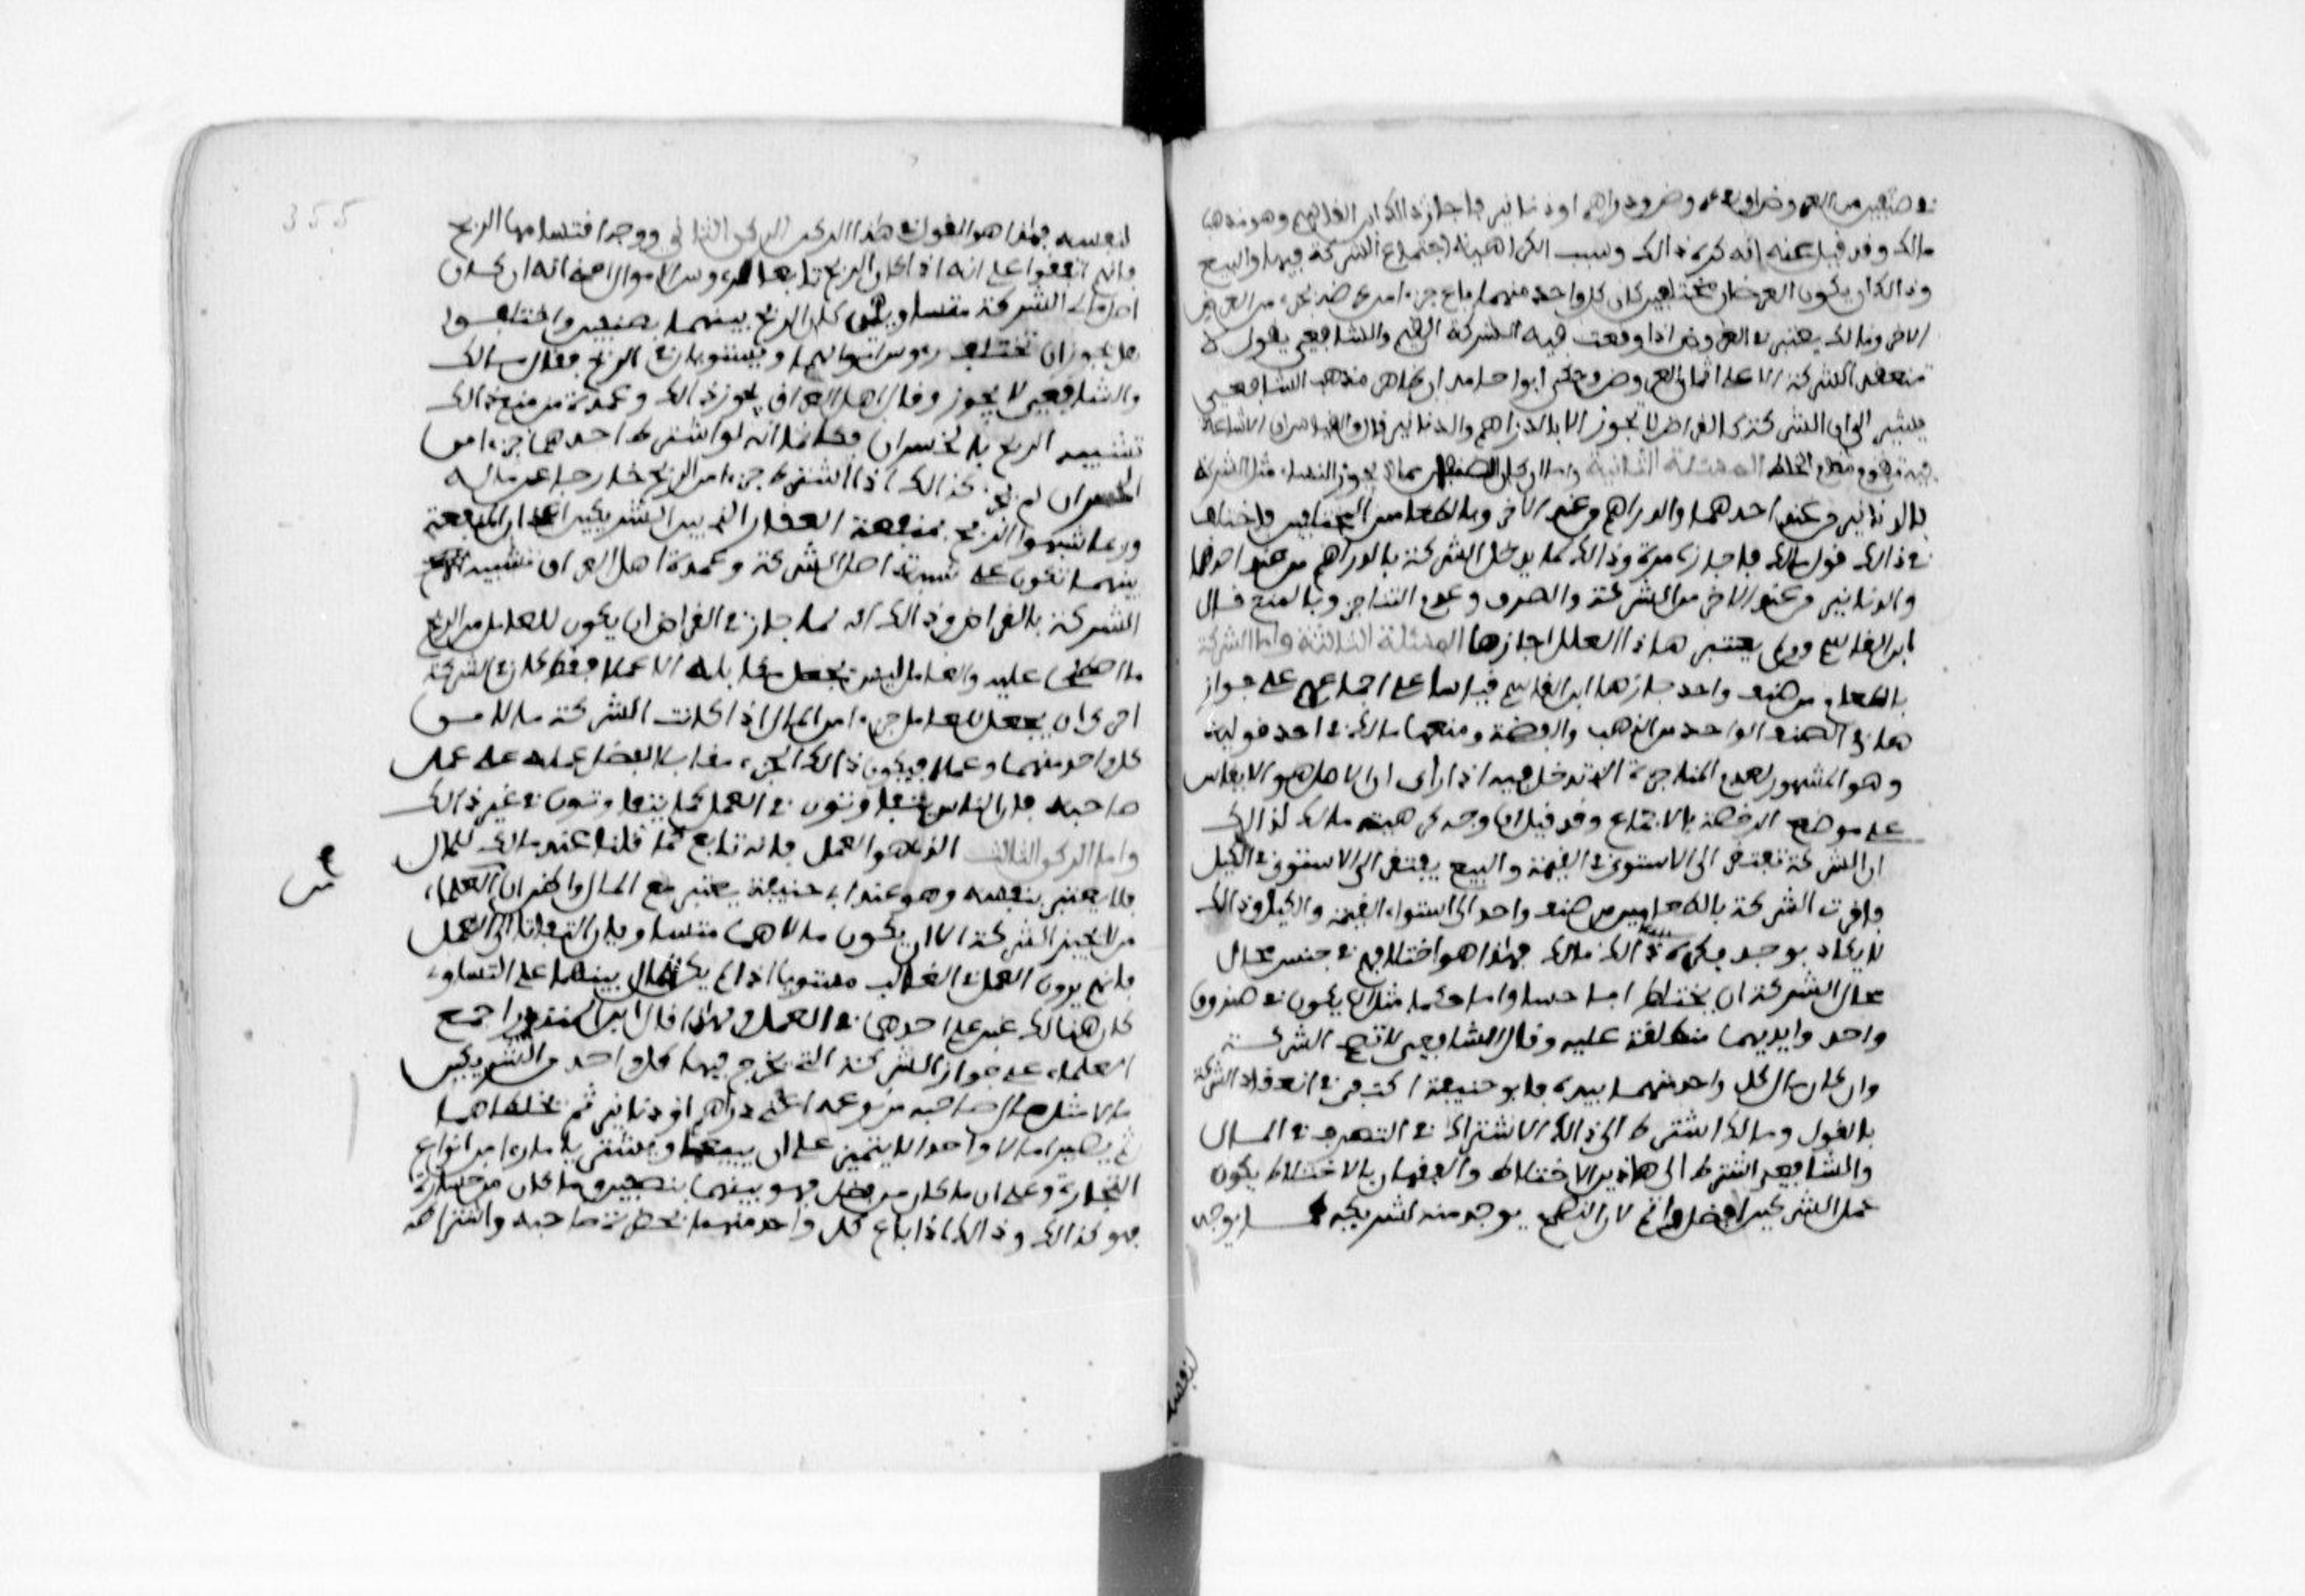 في صنفين من العروض او في عروض ودراهم او دنانير فاجاز ذالك ابن القاسم وهو مذهب
مالك وقد قيل عنه انه كره ذالك وسبب الكراهية اجتماع الشركة فيها والبيع
وذالك ان يكون العرضان مختلفين كان كل واحد منهما باع جزءا من عرضه بجزء من العرض
الاخر ومالك يعتبر في العروض اذا وقعت فيه الشركة القيم والشافعي يقول لا
تنعقد الشركة الا على اثمان العروض وحكى ابو احامد ان ظاهر مذهب الشافعي
يشير الى ان الشركة كالقراض لا تجوز الا بالدراهم والدنانير قال والقياس ان الاشاعة
فيه تقوم مقام الخلط المسئلة الثانية واما ان كان الصنفان مما لا يجوز النساء مثل الشركة
بالدنانير من عند احدهما والدراهم من عند الاخر وبالطعامين المختلفين فاختلف
في ذالك قول مالك فاجازه مرة وذالك لما يدخل الشركة بالدراهم من عند احدهما
والدنانير من عند الاخر من الشركة والصرف وعدم التناجز وبالمنع قال
ابن القاسم ومن لم يعتبر هاذا العلل اجازها المسئلة الثالثة واما الشركة
بالطعام من صنف واحد جازها ابن القاسم قياسا على اجماعهم على جواز
هما في الصنف الواحد من الذهب والفضة ومنعها مالك في احد قوليه
وهو المشهور لعدم المناجزة التي تدخل فيه اذا رأى ان الاصل هو الا يقاس
على موضع الرخصة بالاجماع وقد قيل ان وجه كراهية مالك لذالك
ان الشركة تفتقر الى الاستوى في القيمة والبيع يفتقر الى الاستوى في الكيل
فافترت الشركة بالطعامين من صنف واحد الى استواء القيمة والكيل وذالك
لا يكاد يوجد فكره ذالك مالك فهذا هو اختلافهم في جنس محال
محال الشركة ان يختلط اما حسا واما حكما مثل ان يكون في صندوق
واحد وايديهما مطلقة عليه وقال الشافعي لا تصح الشركة
وان كان مال كل واحد منهما بيده فابو حنيفة اكتفى في انعقاد الشركة
بالقول ومالك اشترط الى ذالك الاشتراك في التصرف في المال
والشافعي اشترط الى هاذين الاختلاط والفقه ان بالاختلاط يكون
عمل الشركين افضل واتم لان النصح يوجد منه لشريكه كما يوجد
لنفسه
355
لنفسه فهذا هو القول في هذا الركن الركن الثاني ووجه اقتسامهما الربح
فانهم اتفقوا على انه اذا كان الربح تابعا لرءوس الاموال اعني انه ان كان
اصل مال الشركة متساويين كان الربح بينهما بنصفين واختلفوا
هل يجوز ان تختلف رءوس اموالهما ويستويان في الربح فقال مالك
والشافعي لا يجوز وقال اهل العراق يجوز ذالك وعمدة من منع ذالك
تشبيه الربح بالخسران فكما انه لو اشترط احدهما جزءا من
الخسران لم يجز كذالك اذا اشترط جزءا من الربح خارجا عن ماله
وربما شبهوا الربح بمنفعة العقار الذي بين الشريكين اعني ان المنفعة
بينهما تكون على نسبة اصل الشركة وعمدة اهل العراق تشبيه
الشركة بالقراض وذالك انه لما جاز في القراض ان يكون للعامل من الربح
ما اصطلحا عليه والعامل ليس يجعل مقابله الا عملا فقط كان في الشركة
احرى ان يجعل للعامل جزءا من المال اذا كانت الشركة مالا من
كل واحد منهما وعملا فيكون ذالك الجزء مقابلا لفضل عمله على عمل
صاحبه فان الناس يتفاوتون في العمل كما يتفاوتون في غير ذالك
واما الركن الثالث الذي هو العمل فانه تابع كما قلنا عند مالك للمال
فلا يعتبر بنفسه وهو عند ابي حنيفة يعتبر مع المال واظن ان من العلماء
من لا يجيز الشركة الا ان يكون مالاهما متساويان التفاتا الى العمل
فانهم يرون العمل في الغالب مستويا اذا لم يكن المال بينهما على التساوي
كان هنالك غبن على احدهما في العمل ولهاذا قال ابن المنذر اجمع
العلماء على جواز الشركة التي يخرج فيها كل واحد من الشريكين
مالا مثل مال صاحبه من نوعه اعني دراهم او دنانير ثم يخلطاهما
ثم يصيرا مالا واحدا لا يتميز على ان يبيعا ويشتريا ما رءا من انواع
التجارة وعلى ان ما كان من فضل فهو بينهما بنصفين وما كان من خسارة
فهو كذالك وذالك اذا باع كل واحد منهما بحضرة صاحبه واشتراطه